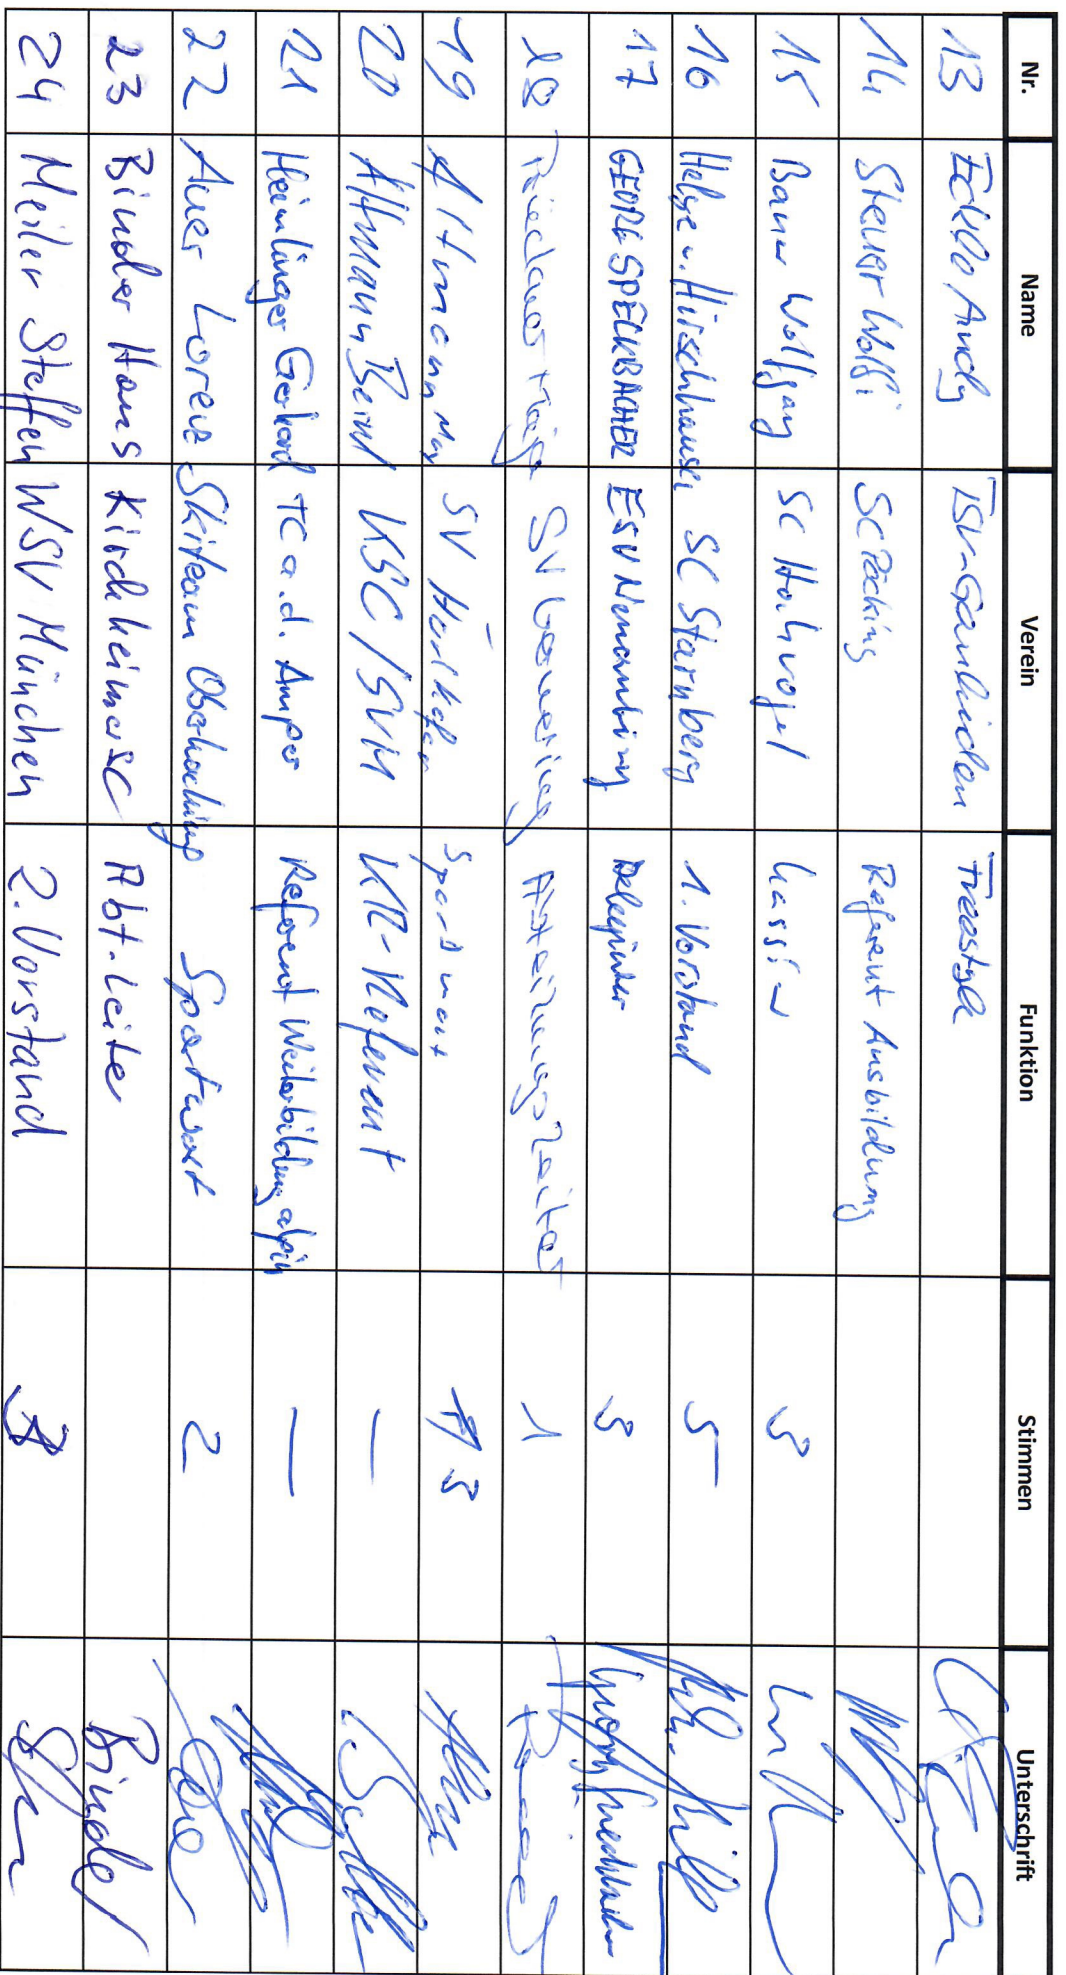 Nr. Name Verein Funktion Stimmen Unterschrift
13 Eckl Andy TSV-Gaulinden Freestyle
14 Steuer Wolfi SC Pöcking Referent Ausbildung
15 Bauer Wolfgang SC Hochvogel Kassier 3
16 Helge v. Hirschhausen SC Starnberg 1. Vorstand 5
17 GEORG SPECKBACHER ESV Delegierter 3
18 SV Abteilungsleiter 1
19 Altmann Max SV Sportwart 3
20 Altmann Bernd KSC/SVH KR-Referent —
21 Heimlinger Gerhard TC a.d. Amper Referent Weiterbildung alpin —
22 Auer Lorenz Skiteam Oberhaching Sportwart 2
23 Binder Hans Kirchheimer SC Abt.Leite Binder
24 Meiler Steffen WSV München 2. Vorstand